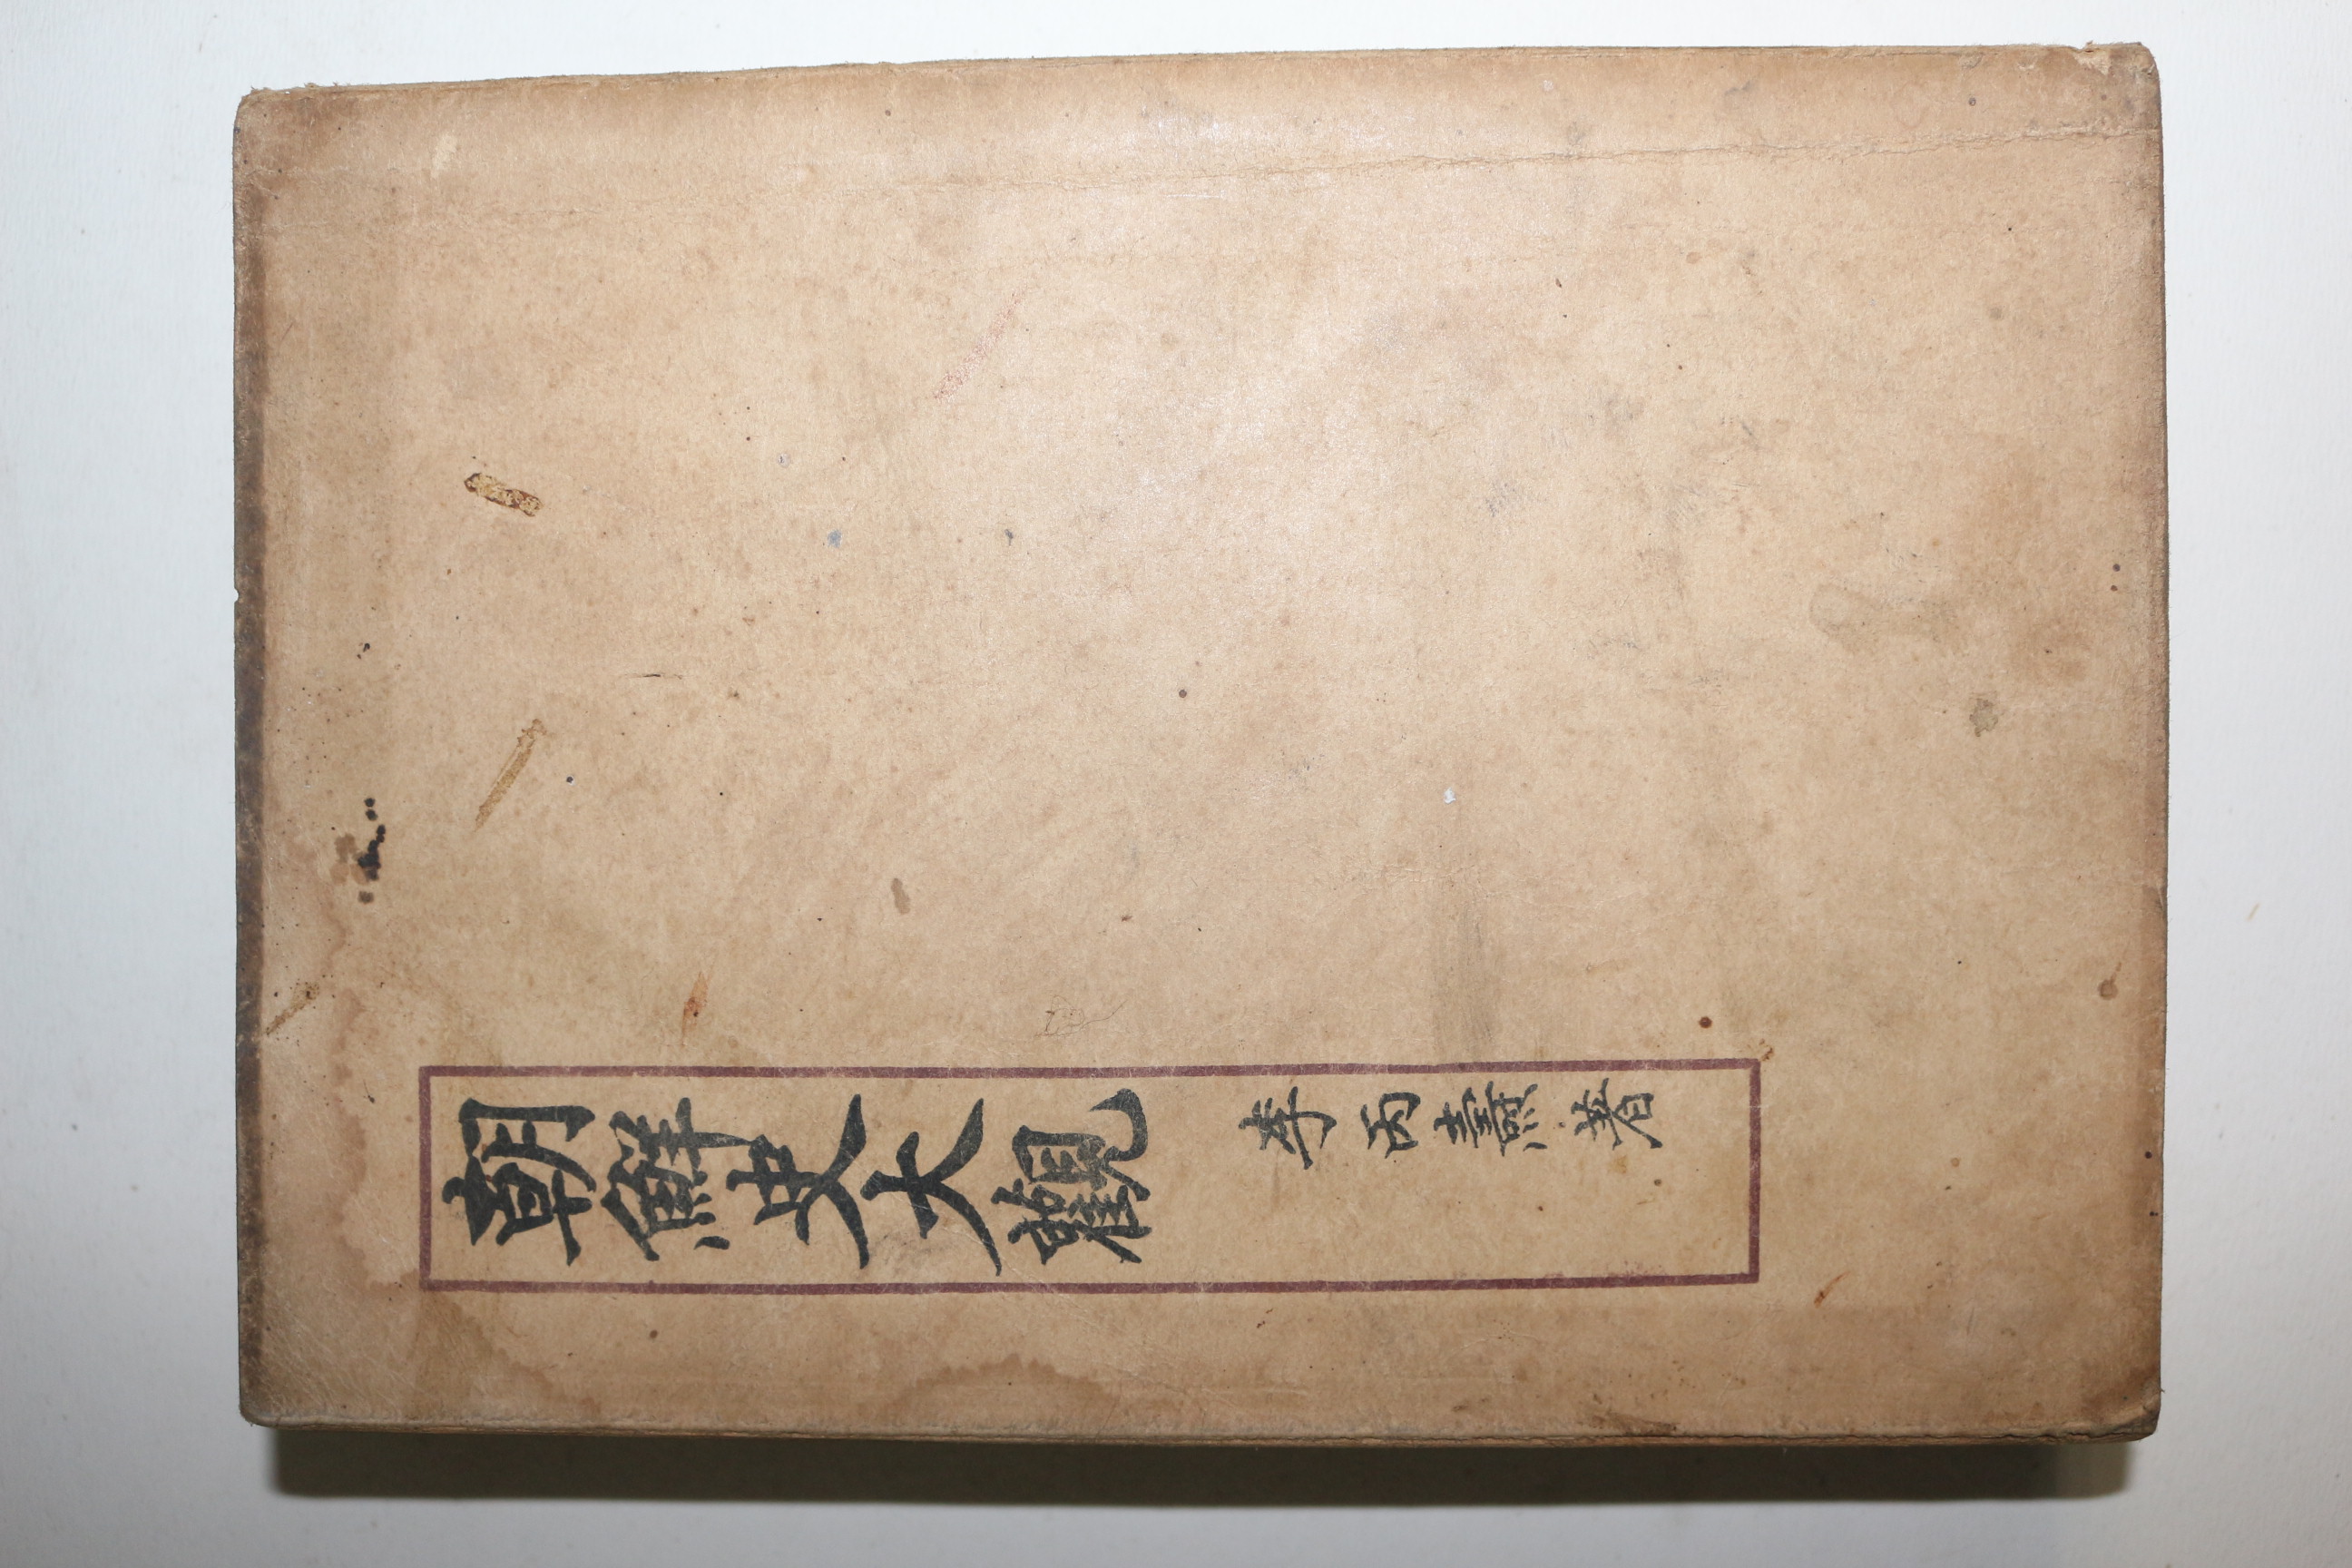 朝鮮史大觀 李丙燾著